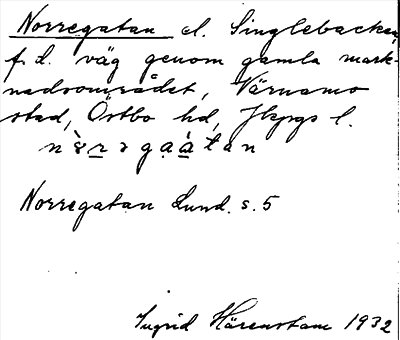 Norregatan el. Singlebacken,
f.d. väg genom gamla mark-
nadsområdet, Värnamo
stad, Östbo hd, Jkpgs l.
Norregatan Lund. s. 5
Ingrid Härenstam 1932